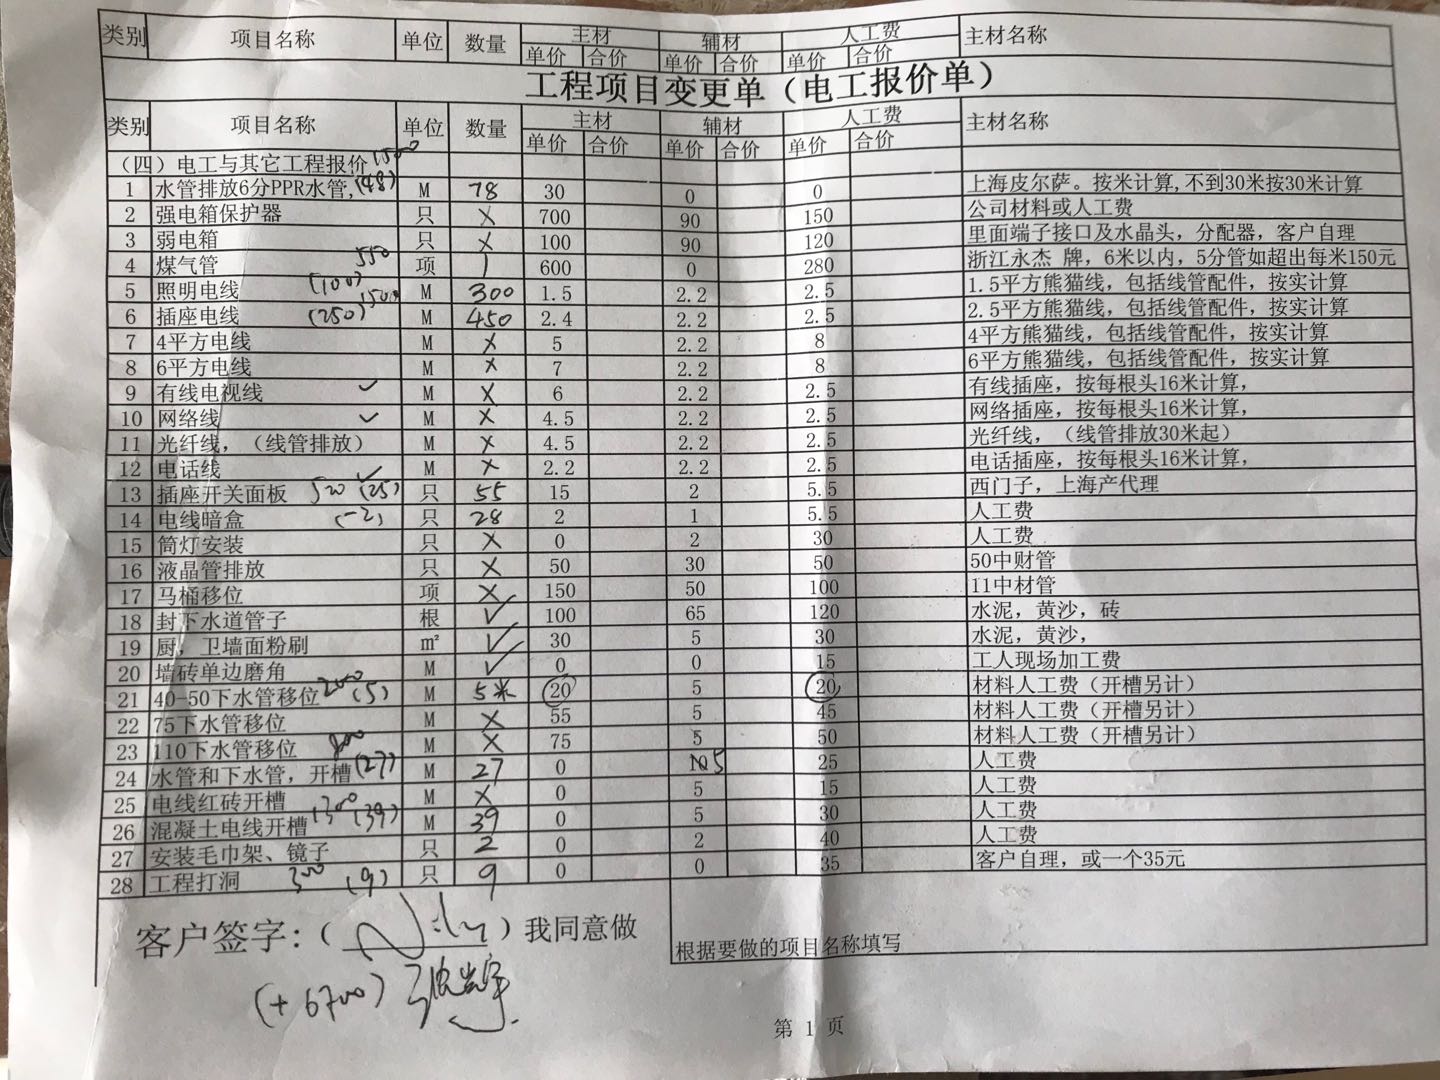 类别 项目名称 单位 数量 主材 辅材 人工费 主材名称
单价 合价 单价 合价 单价 合价
工程项目变更单（电工报价单）
类别 项目名称 单位 数量 主材 辅材 人工费 主材名称
单价 合价 单价 合价 单价 合价
（四）电工与其它工程报价 1500
1 水管排放6分PPR水管, (48) M 78 30 0 0 上海皮尔萨。按米计算,不到30米按30米计算
2 强电箱保护器 只 X 700 90 150 公司材料或人工费
3 弱电箱 只 X 100 90 120 里面端子接口及水晶头，分配器，客户自理
4 煤气管 550 项 1 600 0 280 浙江永杰 牌，6米以内，5分管如超出每米150元
5 照明电线 (100) M 300 1.5 2.2 2.5 1.5平方熊猫线，包括线管配件，按实计算
6 插座电线 (250) 1500 M 450 2.4 2.2 2.5 2.5平方熊猫线，包括线管配件，按实计算
7 4平方电线 M X 5 2.2 8 4平方熊猫线，包括线管配件，按实计算
8 6平方电线 M X 7 2.2 8 6平方熊猫线，包括线管配件，按实计算
9 有线电视线 ✓ M X 6 2.2 2.5 有线插座，按每根头16米计算，
10 网络线 ✓ M X 4.5 2.2 2.5 网络插座，按每根头16米计算，
11 光纤线，（线管排放） M X 4.5 2.2 2.5 光纤线，（线管排放30米起）
12 电话线 ✓ M X 2.2 2.2 2.5 电话插座，按每根头16米计算，
13 插座开关面板 520 (25) 只 55 15 2 5.5 西门子，上海产代理
14 电线暗盒 (-2) 只 28 2 1 5.5 人工费
15 筒灯安装 只 X 0 2 30 人工费
16 液晶管排放 只 X 50 30 50 50中财管
17 马桶移位 项 X 150 50 100 11中材管
18 封下水道管子 根 ✓ 100 65 120 水泥，黄沙，砖
19 厨，卫墙面粉刷 m² ✓ 30 5 30 水泥，黄沙，
20 墙砖单边磨角 M ✓ 0 0 15 工人现场加工费
21 40-50下水管移位 200 (5) M 5米 20 5 20 材料人工费（开槽另计）
22 75下水管移位 M X 55 5 45 材料人工费（开槽另计）
23 110下水管移位 M X 75 5 50 材料人工费（开槽另计）
24 水管和下水管，开槽 (27) M 27 0 5 25 人工费
25 电线红砖开槽 M X 0 5 15 人工费
26 混凝土电线开槽 1300 (39) M 39 0 5 30 人工费
27 安装毛巾架、镜子 只 2 0 2 40 人工费
28 工程打洞 300 (9) 只 9 0 0 35 客户自理，或一个35元
客户签字：（ ）我同意做
根据要做的项目名称填写
(+6700)
第 1 页